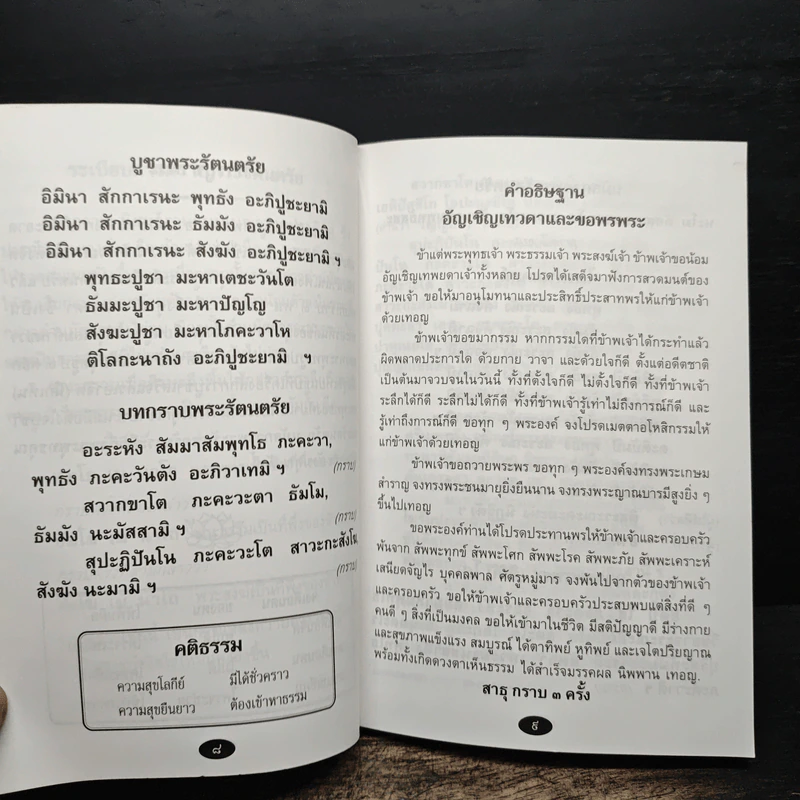 บูชาพระรัตนตรัย
อิมินา สักกาเรนะ พุทธัง อะภิปูชะยามิ
อิมินา สักกาเรนะ ธัมมัง อะภิปูชะยามิ
อิมินา สักกาเรนะ สังฆัง อะภิปูชะยามิ ฯ
พุทธะปูชา มะหาเตชะวันโต
ธัมมะปูชา มะหาปัญโญ
สังฆะปูชา มะหาโภคะวาโห
ติโลกะนาถัง อะภิปูชะยามิ ฯ
บทกราบพระรัตนตรัย
อะระหัง สัมมาสัมพุทโธ ภะคะวา,
พุทธัง ภะคะวันตัง อะภิวาเทมิ ฯ (กราบ)
สวากขาโต ภะคะวะตา ธัมโม,
ธัมมัง นะมัสสามิ ฯ (กราบ)
สุปะฏิปันโน ภะคะวะโต สาวะกะสังโฆ,
สังฆัง นะมามิ ฯ (กราบ)
คติธรรม
ความสุขโลกีย์ มีได้ชั่วคราว
ความสุขยืนยาว ต้องเข้าหาธรรม
๘
คำอธิษฐาน
อัญเชิญเทวดาและขอพรพระ
ข้าแต่พระพุทธเจ้า พระธรรมเจ้า พระสงฆ์เจ้า ข้าพเจ้าขอน้อม
อัญเชิญเทพยดาเจ้าทั้งหลาย โปรดได้เสด็จมาฟังการสวดมนต์ของ
ข้าพเจ้า ขอให้มาอนุโมทนาและประสิทธิ์ประสาทพรให้แก่ข้าพเจ้า
ด้วยเทอญ
ข้าพเจ้าขอขมากรรม หากกรรมใดที่ข้าพเจ้าได้กระทำแล้ว
ผิดพลาดประการใด ด้วยกาย วาจา และด้วยใจก็ดี ตั้งแต่อดีตชาติ
เป็นต้นมาจวบจนในวันนี้ ทั้งที่ตั้งใจก็ดี ไม่ตั้งใจก็ดี ทั้งที่ข้าพเจ้า
ระลึกได้ก็ดี ระลึกไม่ได้ก็ดี ทั้งที่ข้าพเจ้ารู้เท่าไม่ถึงการณ์ก็ดี และ
รู้เท่าถึงการณ์ก็ดี ขอทุก ๆ พระองค์ จงโปรดเมตตาอโหสิกรรมให้
แก่ข้าพเจ้าด้วยเทอญ
ข้าพเจ้าขอถวายพระพร ขอทุก ๆ พระองค์จงทรงพระเกษม
สำราญ จงทรงพระชนมายุยิ่งยืนนาน จงทรงพระญาณบารมีสูงยิ่ง ๆ
ขึ้นไปเทอญ
ขอพระองค์ท่านได้โปรดประทานพรให้ข้าพเจ้าและครอบครัว
พ้นจาก สัพพะทุกข์ สัพพะโศก สัพพะโรค สัพพะภัย สัพพะเคราะห์
เสนียดจัญไร บุคคลพาล ศัตรูหมู่มาร จงพ้นไปจากตัวของข้าพเจ้า
และครอบครัว ขอให้ข้าพเจ้าและครอบครัวประสบพบแต่สิ่งที่ดี ๆ
คนดี ๆ สิ่งที่เป็นมงคล ขอให้เข้ามาในชีวิต มีสติปัญญาดี มีร่างกาย
และสุขภาพแข็งแรง สมบูรณ์ ได้ตาทิพย์ หูทิพย์ และเจโตปริยญาณ
พร้อมทั้งเกิดดวงตาเห็นธรรม ได้สำเร็จมรรคผล นิพพาน เทอญ.
สาธุ กราบ ๓ ครั้ง
๙